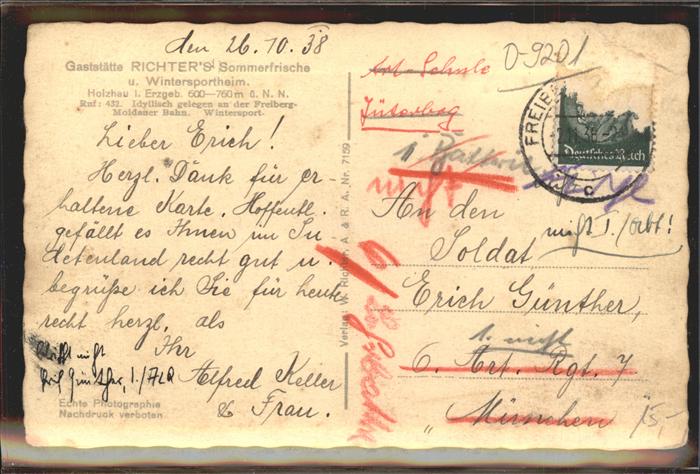 den 26.10.38
Gaststätte RICHTER'S Sommerfrische
u. Wintersportheim.
Holzhau i. Erzgeb. 600—760 m ü. N. N.
Ruf: 432. Idyllisch gelegen an der Freiberg-
Moldauer Bahn. Wintersport.
Lieber Erich!
Herzl. Dank für er-
haltene Karte. Hoffentl.
gefällt es Ihnen im Su
detenland recht gut u.
begrüße ich Sie für heute
recht herzl. als
Ihr
Alfred Keller
& Frau.
nicht
Günther, 1./
Echte Photographie
Nachdruck verboten.
Verlag: W. Richter, A. & R. A. Nr. 7159
Art-Schule
Jüterbog
O-9201
FREIBE
Deutsches Reich
c
1.
nicht
An den
Soldat
nicht 1./
Erich Günther,
1. nicht
6. Art. Rgt. 7
München
6/
15,-